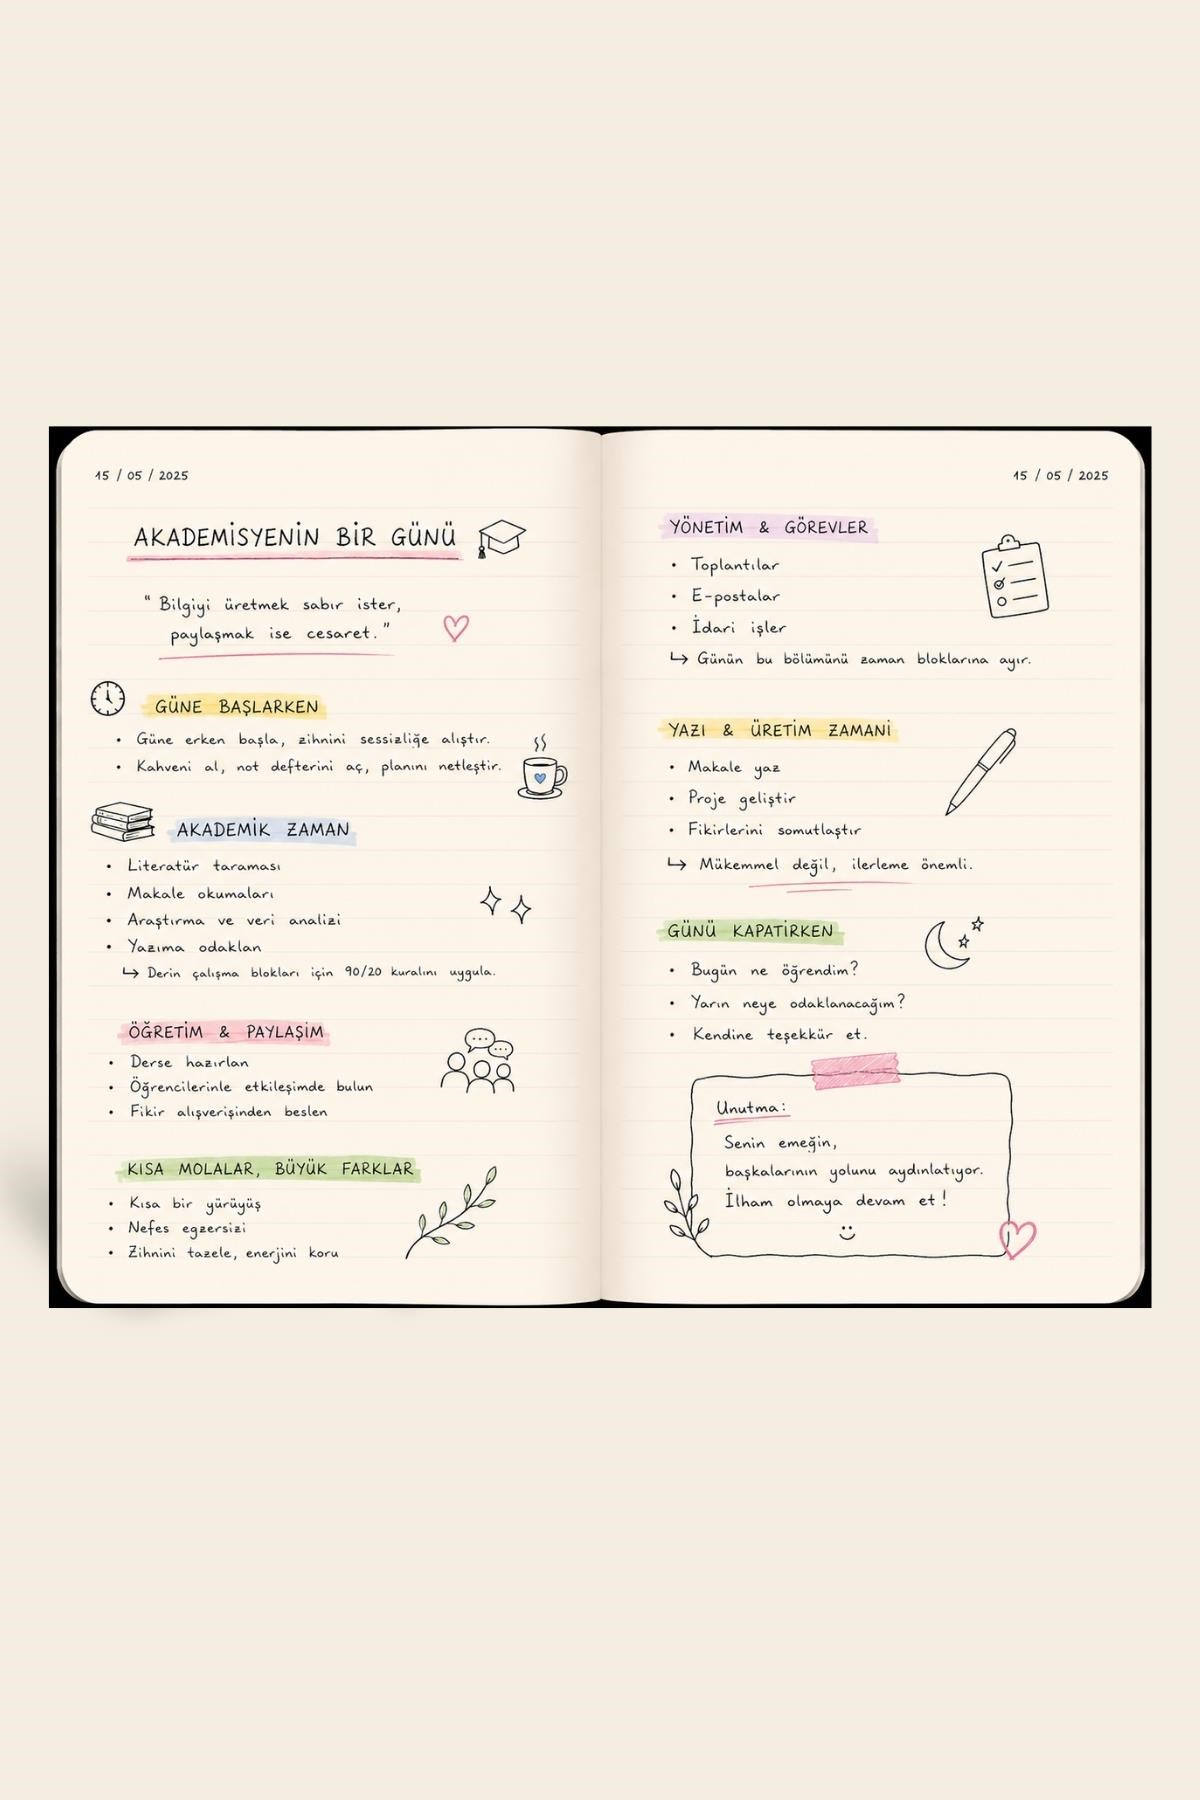 15 / 05 / 2025
AKADEMİSYENİN BİR GÜNÜ
“ Bilgiyi üretmek sabır ister,
paylaşmak ise cesaret. ”
GÜNE BAŞLARKEN
• Güne erken başla, zihnini sessizliğe alıştır.
• Kahveni al, not defterini aç, planını netleştir.
AKADEMİK ZAMAN
• Literatür taraması
• Makale okumaları
• Araştırma ve veri analizi
• Yazıma odaklan
↳ Derin çalışma blokları için 90/20 kuralını uygula.
ÖĞRETİM & PAYLAŞİM
• Derse hazırlan
• Öğrencilerinle etkileşimde bulun
• Fikir alışverişinden beslen
KISA MOLALAR, BÜYÜK FARKLAR
• Kısa bir yürüyüş
• Nefes egzersizi
• Zihnini tazele, enerjini koru
15 / 05 / 2025
YÖNETİM & GÖREVLER
• Toplantılar
• E-postalar
• İdari işler
↳ Günün bu bölümünü zaman bloklarına ayır.
YAZI & ÜRETİM ZAMANİ
• Makale yaz
• Proje geliştir
• Fikirlerini somutlaştır
↳ Mükemmel değil, ilerleme önemli.
GÜNÜ KAPATİRKEN
• Bugün ne öğrendim?
• Yarın neye odaklanacağım?
• Kendine teşekkür et.
Unutma:
Senin emeğin,
başkalarının yolunu aydınlatıyor.
İlham olmaya devam et!